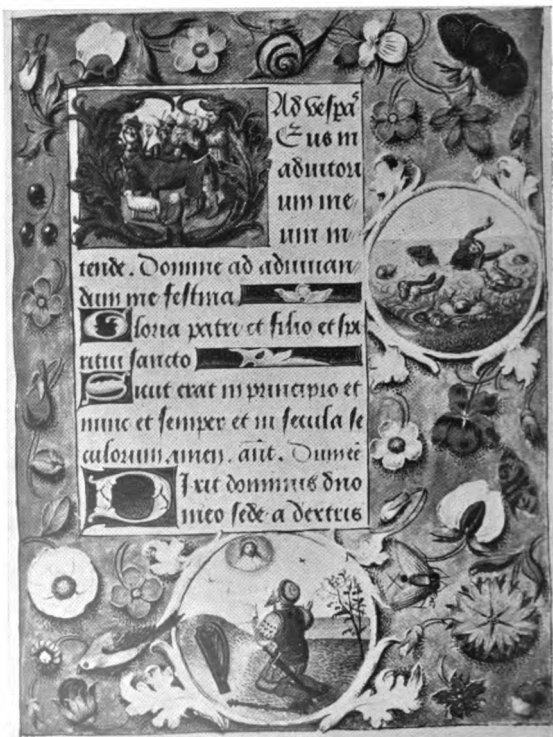 Ad vespaˢ
Eus in
adiutori
um me
um in
tende. Domine ad adiuuan
dum me festina
Gloria patri et filio et spi
ritui sancto
Sicut erat in principio et
nunc et semper et in secula se
culorum amen. añt. Dum eē
DIxit dominus dno
meo sede a dextris